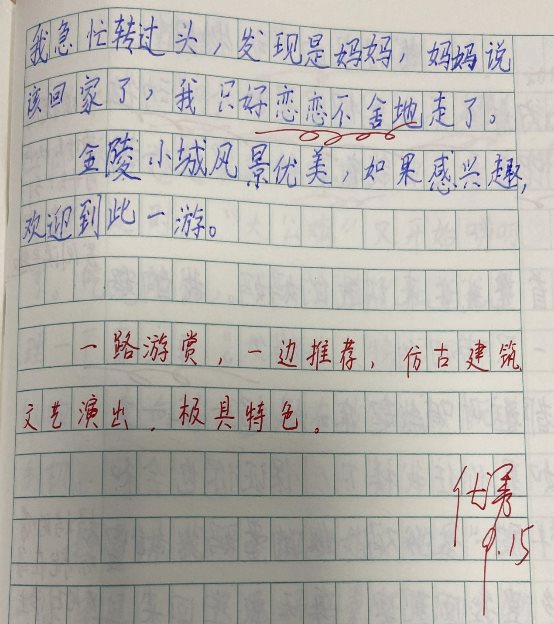 我急忙转过头，发现是妈妈，妈妈说
该回家了，我只好恋恋不舍地走了。
金陵小城风景优美，如果感兴趣，
欢迎到此一游。
一路游赏，一边推荐，仿古建筑
文艺演出，极具特色。
优秀
9.15